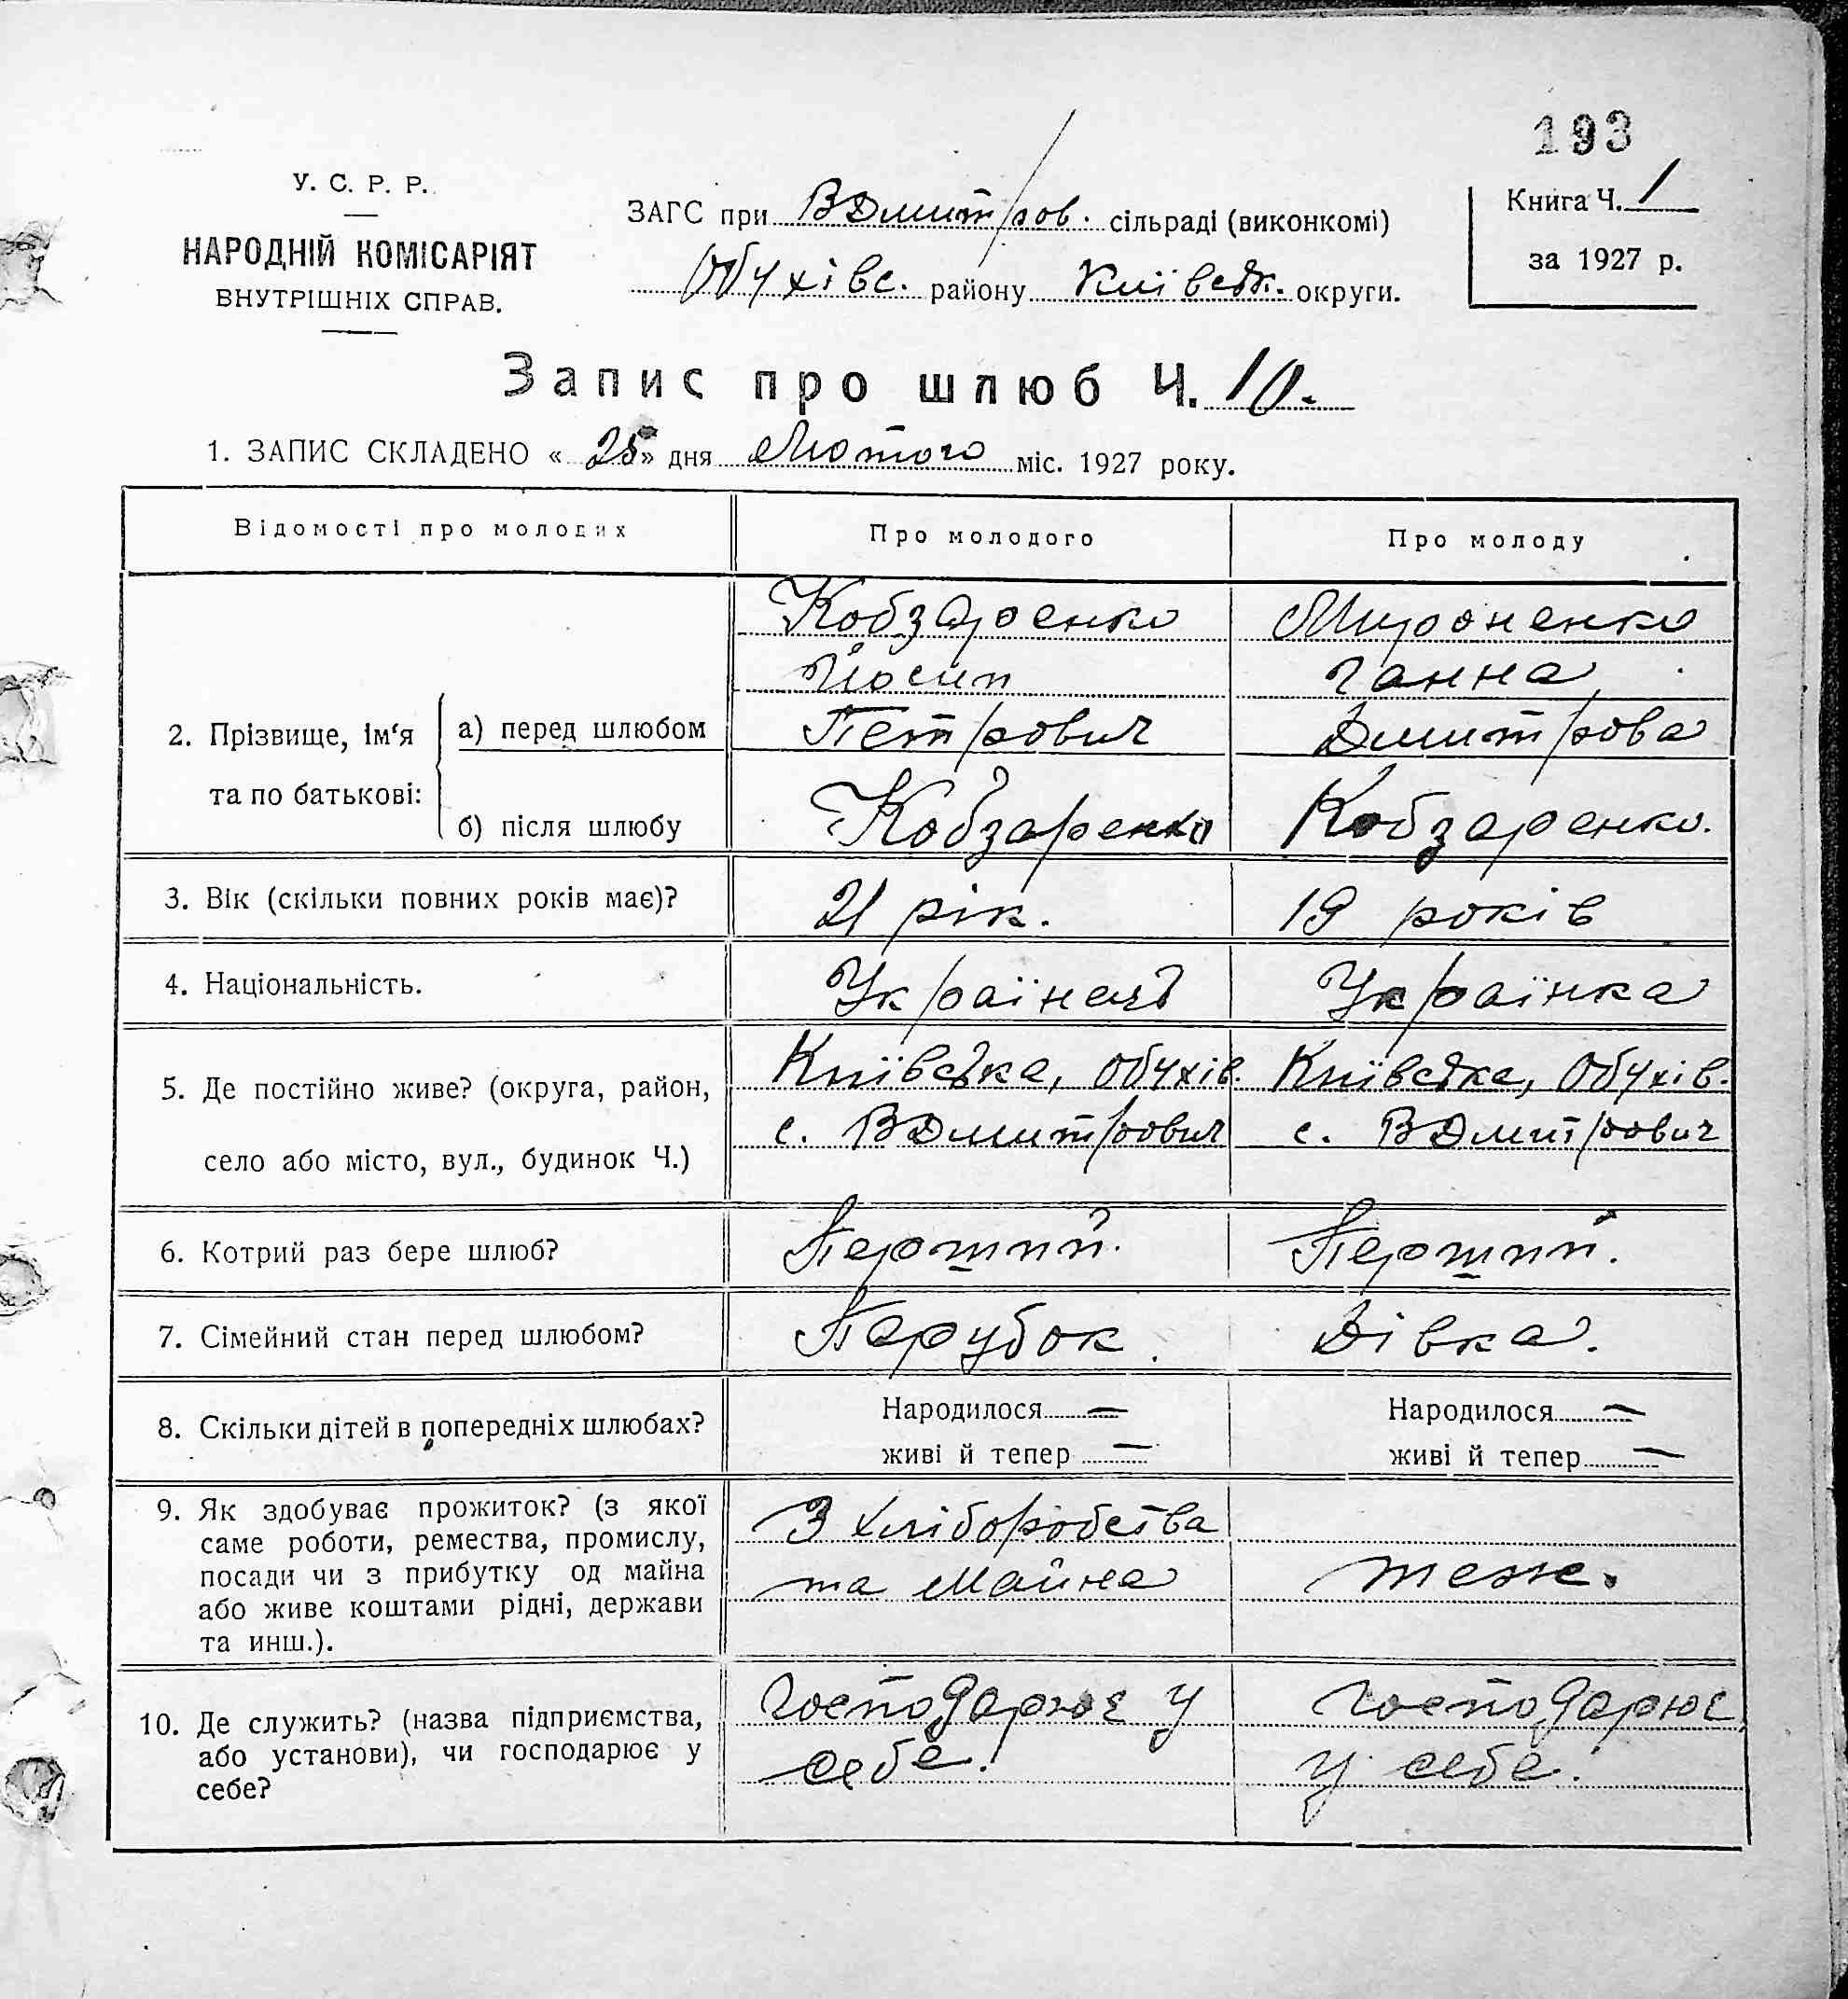 193
У. С. Р. Р.
НАРОДНІЙ КОМІСАРІЯТ
ВНУТРІШНІХ СПРАВ.
ЗАГС при ВДмитров. сільраді (виконкомі)
Обухівс. району Київськ. округи.
Книга Ч. 1
за 1927 р.
Запис про шлюб Ч. 10.
1. ЗАПИС СКЛАДЕНО « 25 » дня Лютого міс. 1927 року.
Відомості про молодих
Про молодого
Про молоду
2. Прізвище, ім'я та по батькові:
а) перед шлюбом
Кобзаренко
Йосип
Петрович
Мироненко
Ганна
Дмитрова
б) після шлюбу
Кобзаренко
Кобзаренко.
3. Вік (скільки повних років має)?
21 рік.
19 років
4. Національність.
Українець
Українка
5. Де постійно живе? (округа, район,
село або місто, вул., будинок Ч.)
Київська, Обухів.
с. ВДмитрович
Київська, Обухів.
с. ВДмитрович
6. Котрий раз бере шлюб?
Перший.
Перший.
7. Сімейний стан перед шлюбом?
Парубок.
Дівка.
8. Скільки дітей в попередніх шлюбах?
Народилося —
живі й тепер —
Народилося —
живі й тепер —
9. Як здобуває прожиток? (з якої
саме роботи, ремества, промислу,
посади чи з прибутку од майна
або живе коштами рідні, держави
та инш.).
З хліборобства
та майна
теж.
10. Де служить? (назва підприємства,
або установи), чи господарює у
себе?
Господарює у
себе.
Господарює
у себе.